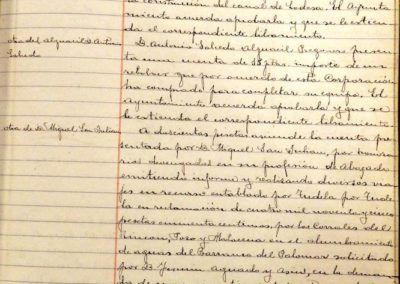 la construcción del canal de Lodosa. El Ayunta-
miento acuerda aprobarla y que se le extien-
da el correspondiente libramiento.
otra del Alguacil D. Antonio
Salcedo
D. Antonio Salcedo Alguacil Pregonero presen-
ta una cuenta de 55 ptas. importe de un
que por acuerdo de esta Corporación
ha comprado para completar su equipo. El
ayuntamiento acuerda aprobarla y que se
le extienda el correspondiente libramiento.
otra de D. Miguel San Julian
A doscientas pesetas asciende la cuenta pre-
sentada por D. Miguel San Julian, por honora-
rios devengados en su profesión de Abogado
emitiendo informe y realizando diversos via-
jes en recurso entablado por Tudela por Tudela
en reclamación de cuatro mil noventa y cinco
pesetas cincuenta centimos, por los Corrales del
Rincon, Pozo y en el alumbramiento
de aguas del Barranco del Palomar solicitado
por D. Aguado y en la deman-